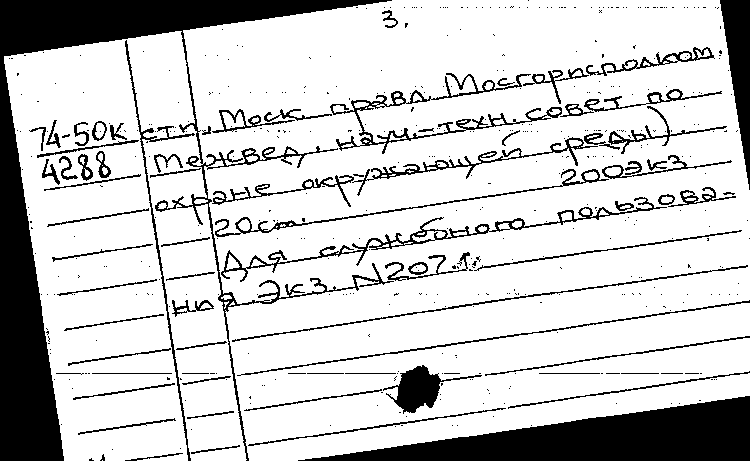 3.
74-50к стп, Моск. правл. Мосгорисполком.
4288 Межвед. науч.-техн. совет по
охране окружающей среды).
20см. 200экз
Для служебного пользова-
ния Экз. N207.